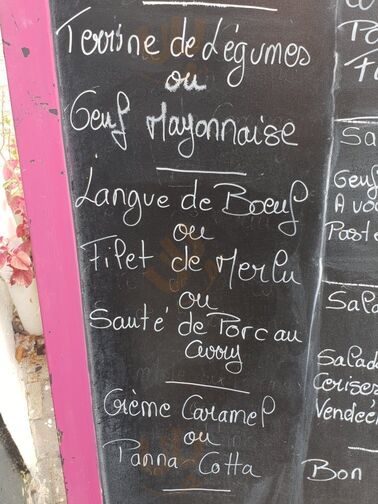 Terrine de Légumes
ou
Oeuf Mayonnaise
Langue de Boeuf
ou
Filet de Merlu
ou
Sauté de Porc au
curry
Crème Caramel
ou
Panna-Cotta
Oeuf
A vo
Past
Salad
Salade
Cerises
Vendée
Bon